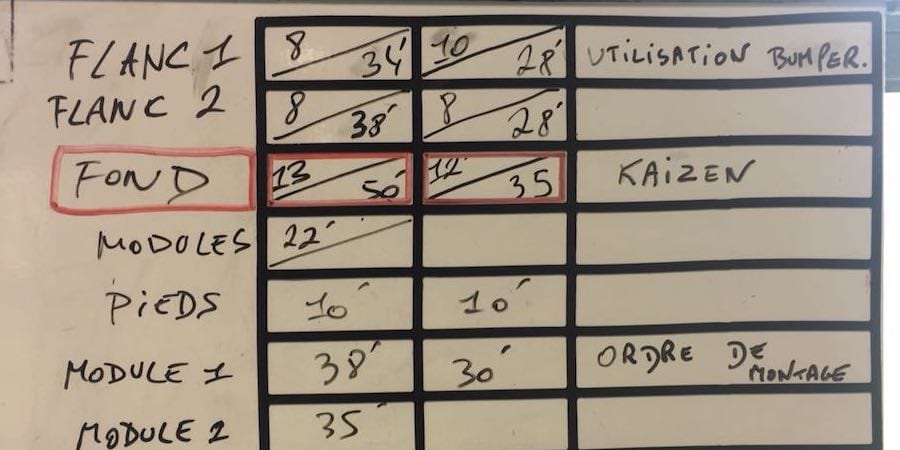 FLANC 1 8 / 34' 10 / 28' UTILISATION BUMPER.
FLANC 2 8 / 38' 8 / 28'
FOND 13 / 50' 12' / 35 KAIZEN
MODULES 22' /
PIEDS 10' 10'
MODULE 1 38' 30' ORDRE DE MONTAGE
MODULE 2 35'